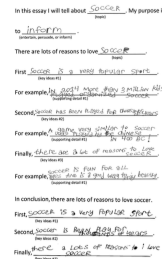 In this essay I will tell about soccer. My purpose i
(topic)
to inform
(entertain, persuade, or inform)
There are lots of reasons to love Soccer
(topic)
First, Soccer is a very popular sport
(key idea #1)
For example, in 2014 more than 3 million kids
organized soccer
(supporting detail #1)
Second, Soccer has been played for thousands of years
(key idea #2)
For example, A game very similar to soccer
(supporting detail #2)
Finally, there are a lot of reasons to love
soccer
(key idea #3)
For example, soccer is fun for all
(supporting detail #3)
In conclusion, there are lots of reasons to love soccer.
First, soccer is a very popular sport
(key idea #1)
Second, soccer is Been play for
(key idea #2)
Finally, there a lots of reasons to love
soccer
(key idea #3)